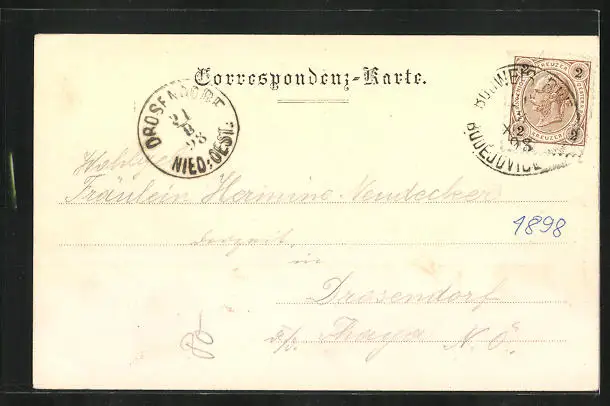 Correspondenz-Karte.
DROSENDORF
21
8
98
NIED: OEST.
BUDWEIS
X
98
BUDĚJOVICE
2 KREUZER 2
2 KREUZER 2
Wohlgeb
Fräulein Hermine Neudecker
derzeit,
in
Drosendorf
a/d. Thaya N. Ö.
1898